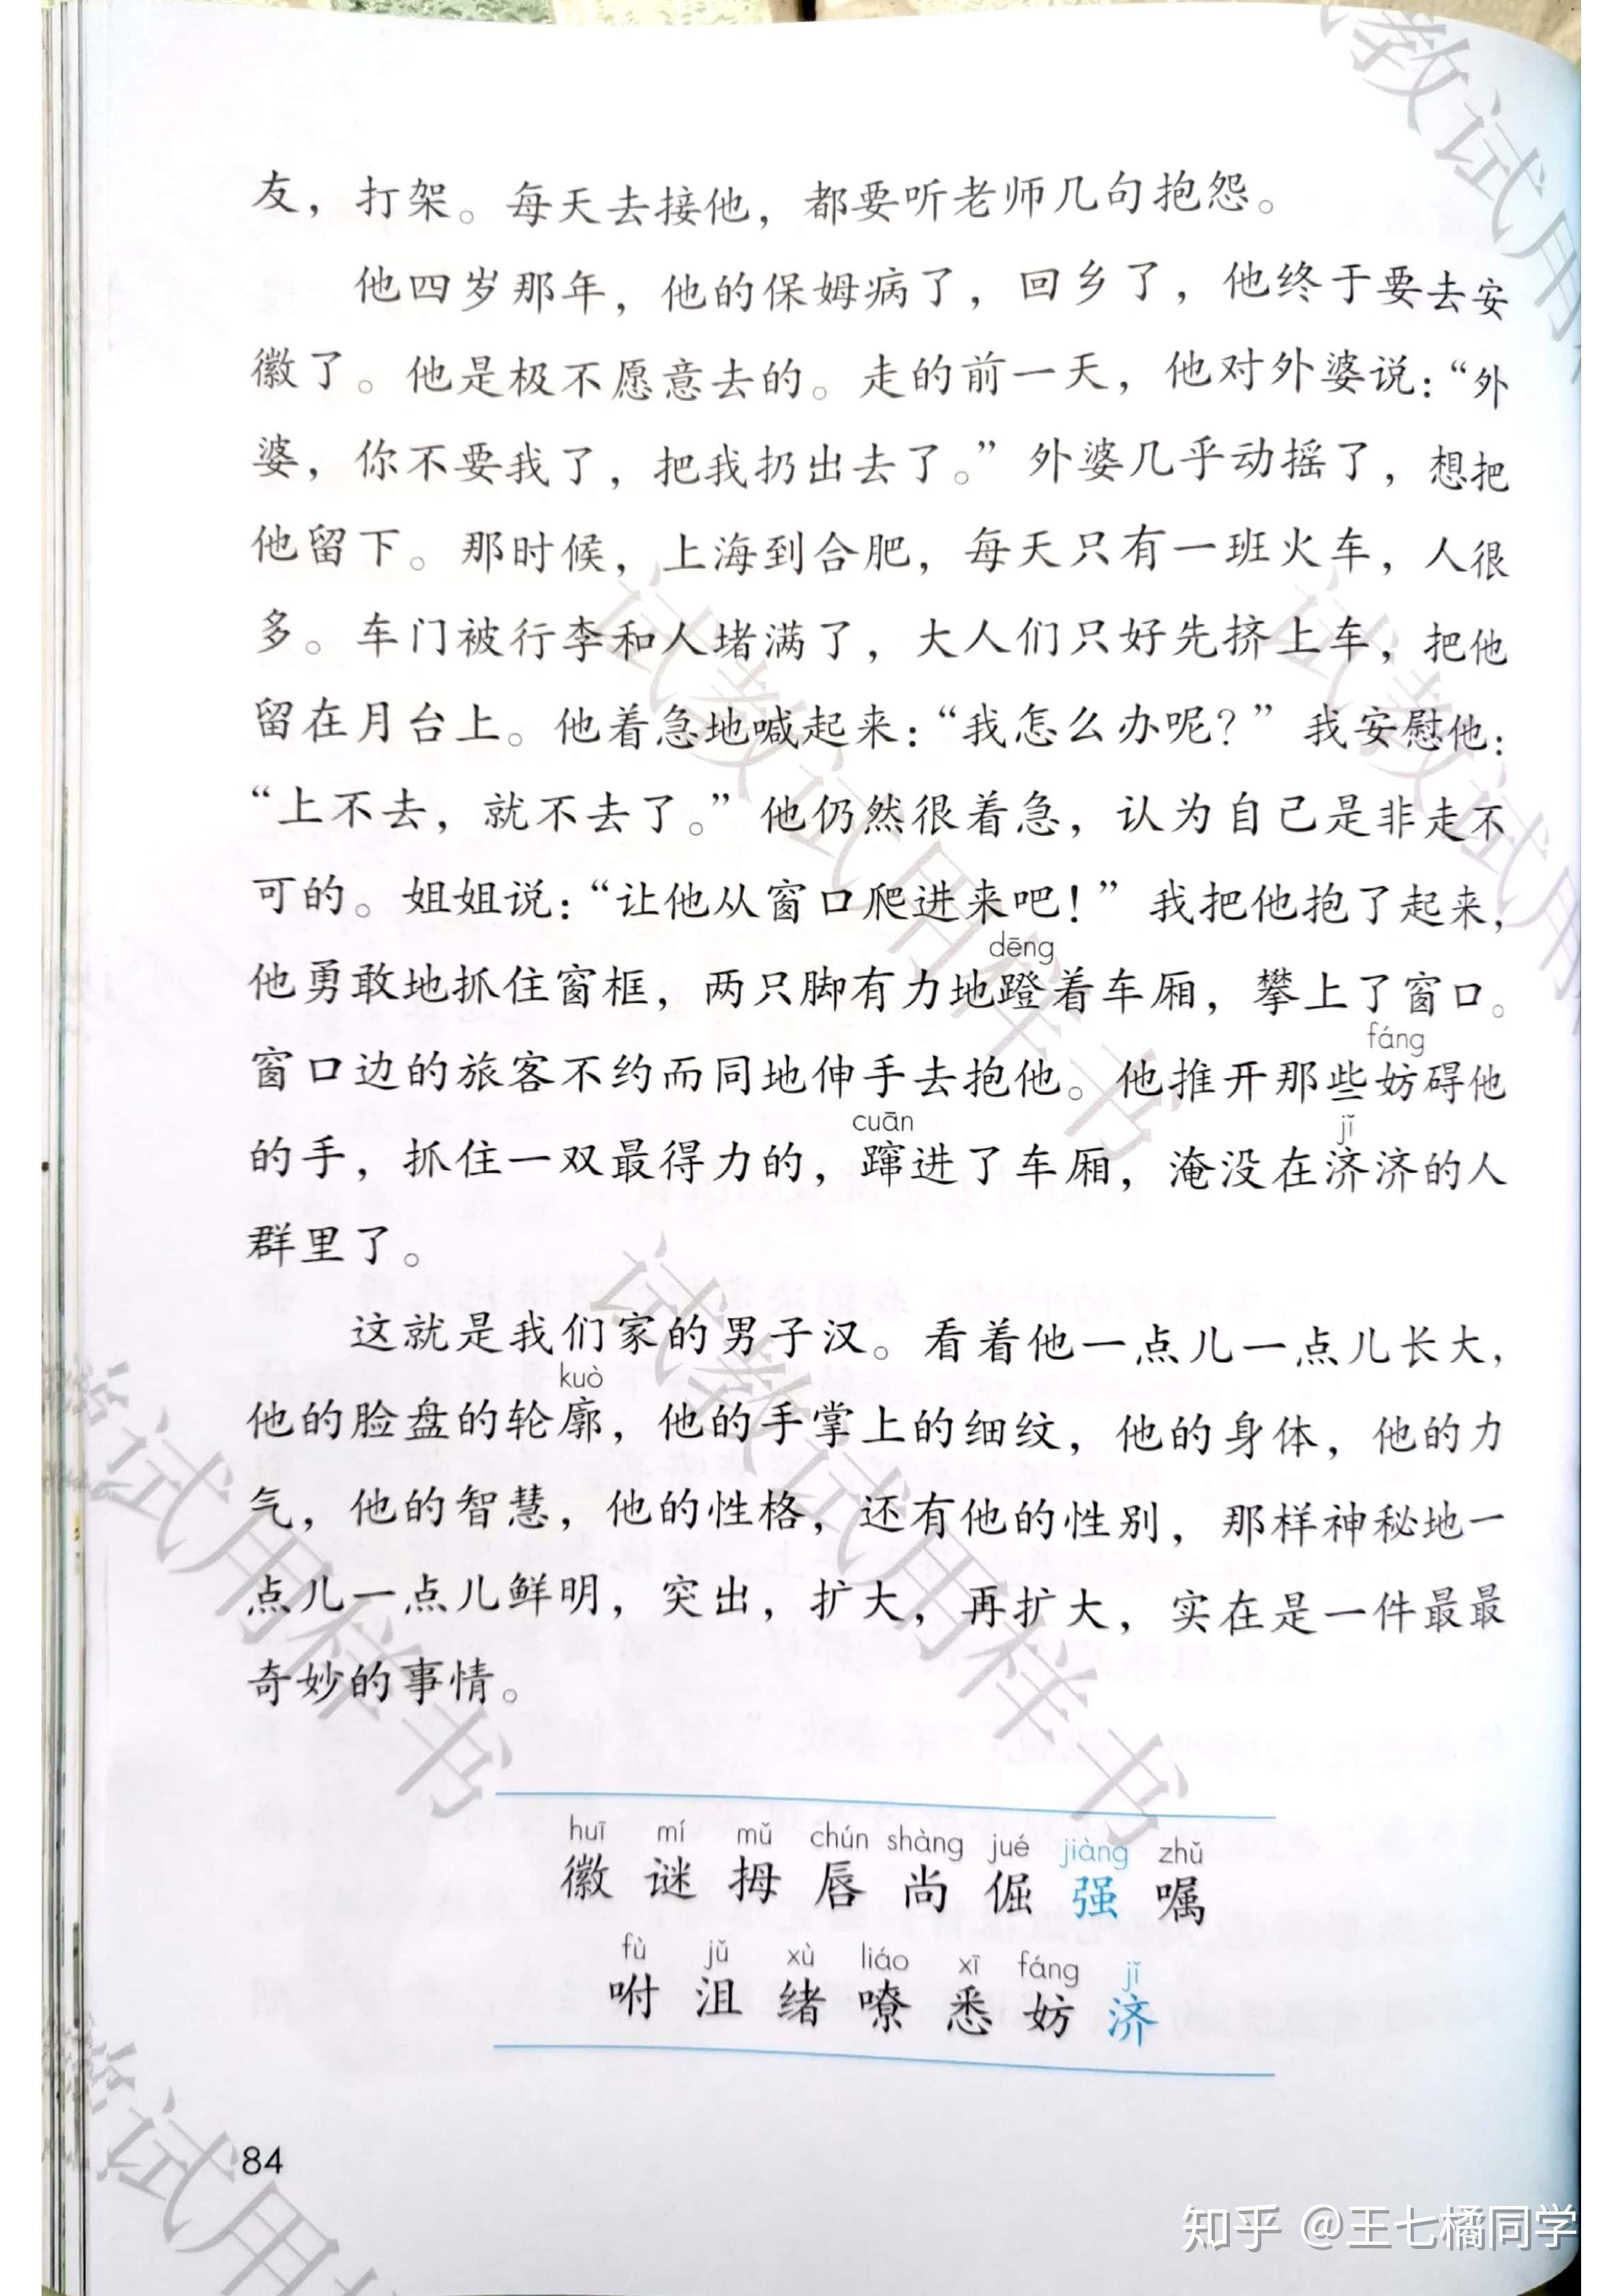 友，打架。每天去接他，都要听老师几句抱怨。
他四岁那年，他的保姆病了，回乡了，他终于要去安
徽了。他是极不愿意去的。走的前一天，他对外婆说：“外
婆，你不要我了，把我扔出去了。”外婆几乎动摇了，想把
他留下。那时候，上海到合肥，每天只有一班火车，人很
多。车门被行李和人堵满了，大人们只好先挤上车，把他
留在月台上。他着急地喊起来：“我怎么办呢？”我安慰他：
“上不去，就不去了。”他仍然很着急，认为自己是非走不
可的。姐姐说：“让他从窗口爬进来吧！”我把他抱了起来，
dēng
他勇敢地抓住窗框，两只脚有力地蹬着车厢，攀上了窗口。
fáng
窗口边的旅客不约而同地伸手去抱他。他推开那些妨碍他
cuān jǐ
的手，抓住一双最得力的，蹿进了车厢，淹没在济济的人
群里了。
这就是我们家的男子汉。看着他一点儿一点儿长大，
kuò
他的脸盘的轮廓，他的手掌上的细纹，他的身体，他的力
气，他的智慧，他的性格，还有他的性别，那样神秘地一
点儿一点儿鲜明，突出，扩大，再扩大，实在是一件最最
奇妙的事情。
huī mí mǔ chún shàng jué jiàng zhǔ
徽 谜 拇 唇 尚 倔 强 嘱
fù jǔ xù liáo xī fáng jǐ
咐 沮 绪 嘹 悉 妨 济
84
试教试用样书
试教试用样书
试教试用样书
试教试用
试用样书
试用样
知乎 @王七橘同学